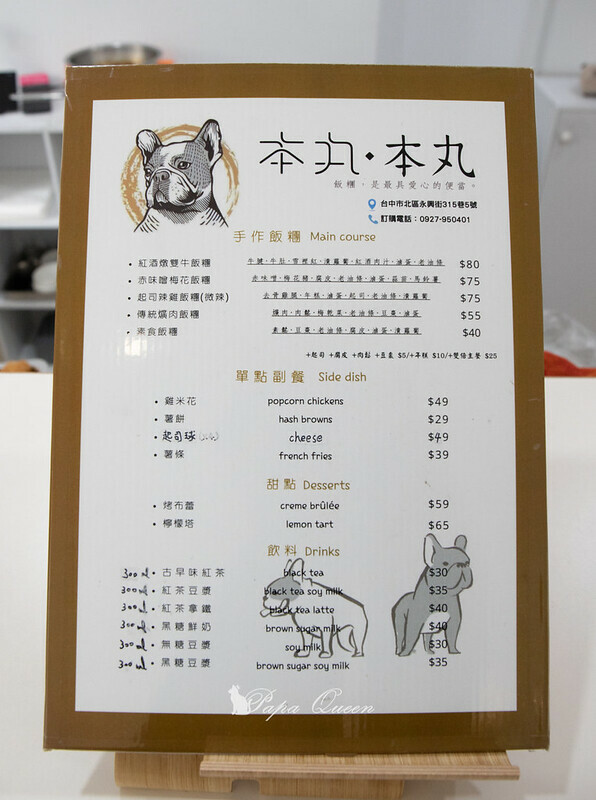 本丸·本丸
飯糰，是最具愛心的便當。
台中市北區永興街315巷5號
訂購電話：0927-950401
手作飯糰 Main course
• 紅酒燉雙牛飯糰 牛腱、牛肚、雪裡紅、漬蘿蔔、紅酒肉汁、滷蛋、老油條 $80
• 赤味噌梅花飯糰 赤味噌、梅花豬、腐皮、老油條、滷蛋、蒜苗、馬鈴薯 $75
• 起司辣雞飯糰(微辣) 去骨雞腿、年糕、滷蛋、起司、老油條、漬蘿蔔 $75
• 傳統爌肉飯糰 爌肉、肉鬆、梅乾菜、老油條、豆棗、滷蛋 $55
• 素食飯糰 素鬆、豆棗、老油條、腐皮、滷蛋、漬蘿蔔 $40
+起司 +腐皮 +肉鬆 +豆棗 $5/+年糕 $10/+雙倍主餐 $25
單點副餐 Side dish
• 雞米花 popcorn chickens $49
• 薯餅 hash browns $29
• 起司球 cheese $49
• 薯條 french fries $39
甜點 Desserts
• 烤布蕾 creme brûlée $59
• 檸檬塔 lemon tart $65
飲料 Drinks
300ml • 古早味紅茶 black tea $30
300ml • 紅茶豆漿 black tea soy milk $35
300ml • 紅茶拿鐵 black tea latte $40
300ml • 黑糖鮮奶 brown sugar milk $40
300ml • 無糖豆漿 soy milk $30
300ml • 黑糖豆漿 brown sugar soy milk $35
Papa Queen